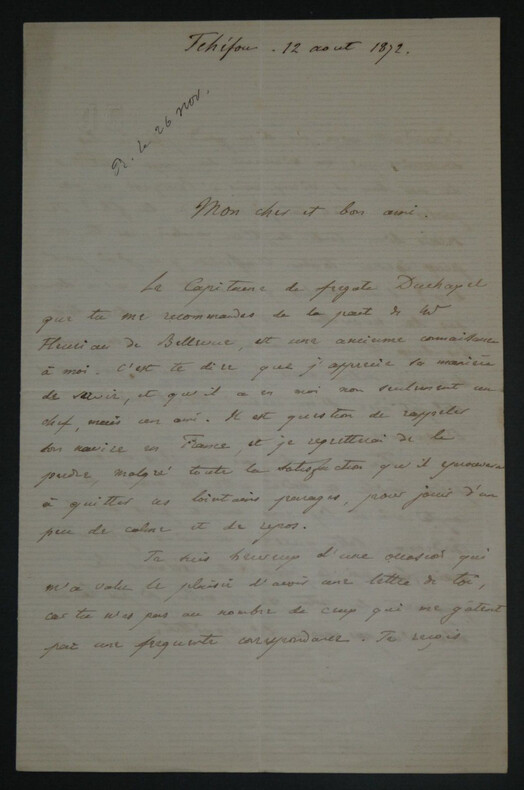 Tchéfou. 12 aout 1872.
R. le 26 nov.
Mon cher et bon ami.
Le Capitaine de fregate Duchapel
que tu me recommandes de la part de Mr
Fleuriau de Bellevue, est une ancienne connaissance
à moi. C'est te dire que j'apprecie sa manière
de servir, et qu'il a en moi non seulement un
chef, mais un ami. Il est question de rappeler
son navire en France, et je regretterai de le
perdre, malgré toute la satisfaction qu'il eprouvera
à quitter ces lointains parages, pour jouir d'un
peu de calme et de repos.
Je suis heureux d'une occasion qui
m'a valu le plaisir d'avoir une lettre de toi,
car tu n'es pas au nombre de ceux qui me gatent
par une frequente correspondance. Je reçois